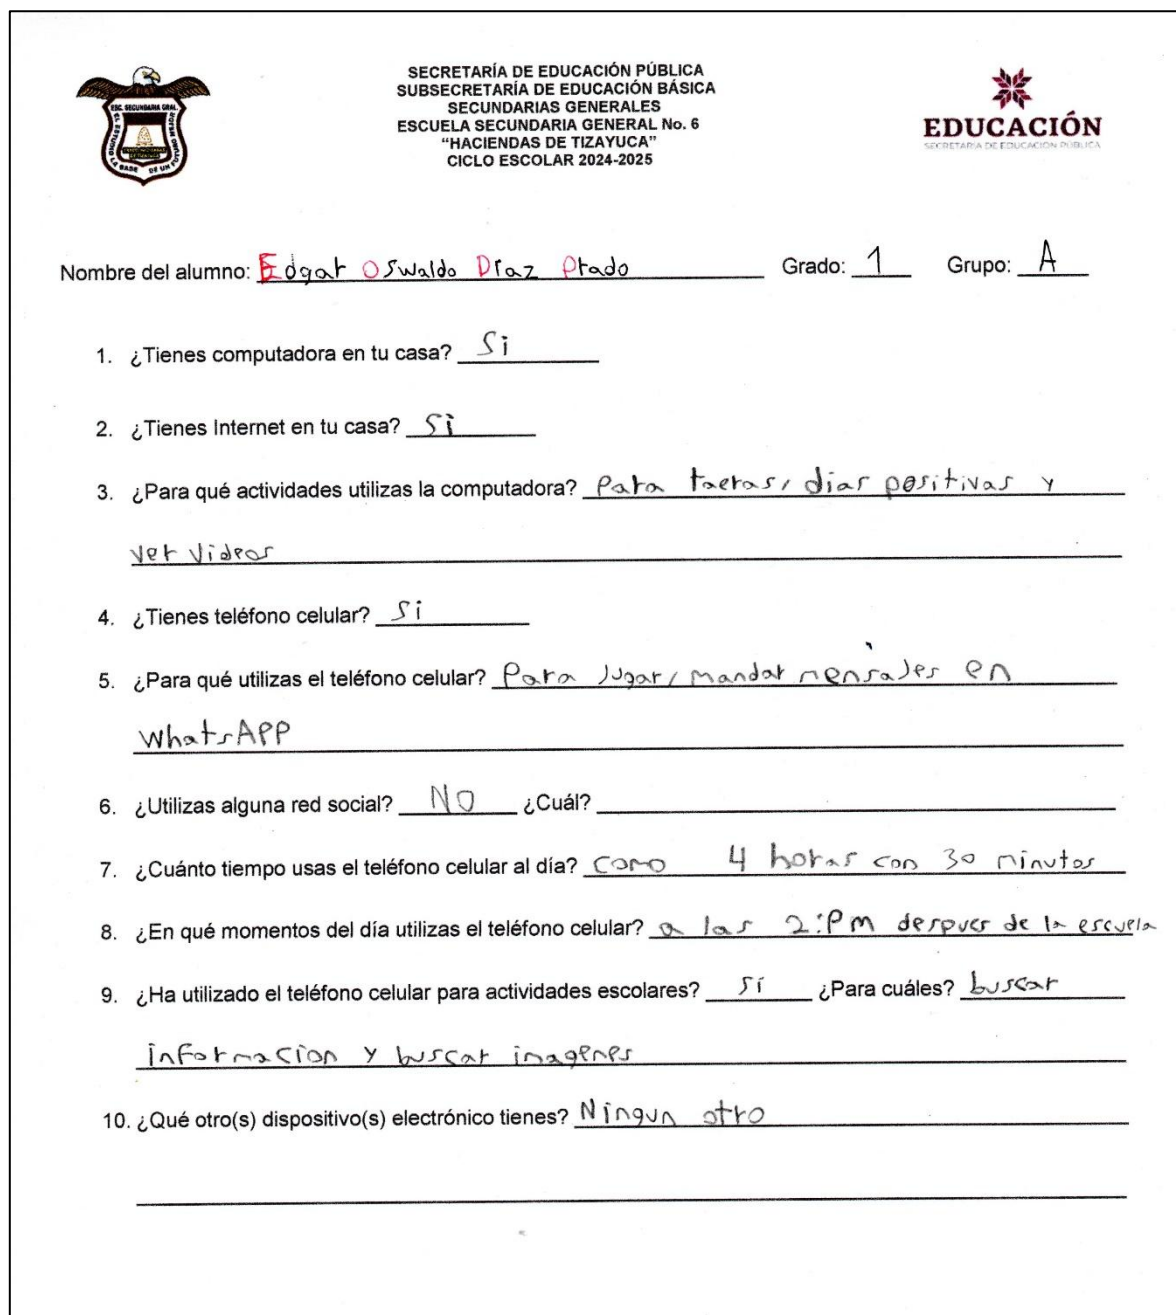 SECRETARÍA DE EDUCACIÓN PÚBLICA
SUBSECRETARÍA DE EDUCACIÓN BÁSICA
SECUNDARIAS GENERALES
ESCUELA SECUNDARIA GENERAL No. 6
“HACIENDAS DE TIZAYUCA”
CICLO ESCOLAR 2024-2025
ESC. SECUNDARIA GRAL.
EL ESTUDIO LA BASE DE UN FUTURO MEJOR
EDUCACIÓN
SECRETARÍA DE EDUCACIÓN PÚBLICA
Nombre del alumno: Edgar Oswaldo Díaz Prado Grado: 1 Grupo: A
1. ¿Tienes computadora en tu casa? Si
2. ¿Tienes Internet en tu casa? Si
3. ¿Para qué actividades utilizas la computadora? Para taeras, dias positivas y
ver videos
4. ¿Tienes teléfono celular? Si
5. ¿Para qué utilizas el teléfono celular? Para jugar, mandar mensajes en
WhatsAPP
6. ¿Utilizas alguna red social? NO ¿Cuál?
7. ¿Cuánto tiempo usas el teléfono celular al día? como 4 horas con 30 minutos
8. ¿En qué momentos del día utilizas el teléfono celular? a las 2:PM despues de la escuela
9. ¿Ha utilizado el teléfono celular para actividades escolares? Sí ¿Para cuáles? buscar
informacion y buscar imagenes
10. ¿Qué otro(s) dispositivo(s) electrónico tienes? Ningun otro